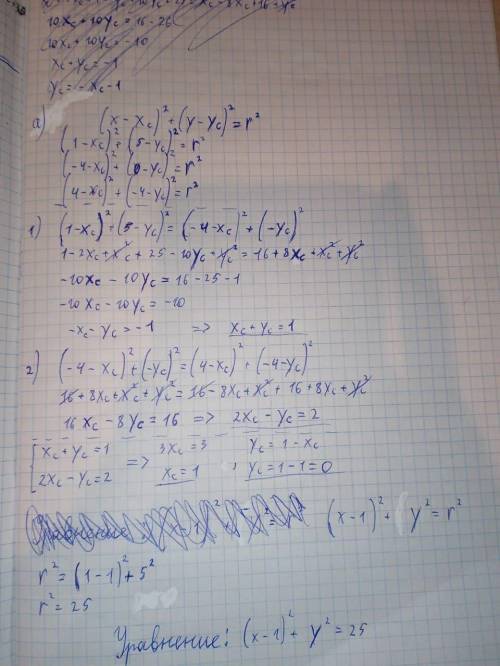 10x_c + 10y_c = 16 - 26
10x_c + 10y_c = -10
x_c + y_c = -1
y_c = -x_c - 1
а) (x - x_c)² + (y - y_c)² = r²
(1 - x_c)² + (5 - y_c)² = r²
(-4 - x_c)² + (0 - y_c)² = r²
(4 - x_c)² + (-4 - y_c)² = r²
1) (1 - x_c)² + (5 - y_c)² = (-4 - x_c)² + (-y_c)²
1 - 2x_c + x_c² + 25 - 10y_c + y_c² = 16 + 8x_c + x_c² + y_c²
-10x_c - 10y_c = 16 - 25 - 1
-10x_c - 10y_c = -10
-x_c - y_c = -1 => x_c + y_c = 1
2) (-4 - x_c)² + (-y_c)² = (4 - x_c)² + (-4 - y_c)²
16 + 8x_c + x_c² + y_c² = 16 - 8x_c + x_c² + 16 + 8y_c + y_c²
16x_c - 8y_c = 16 => 2x_c - y_c = 2
x_c + y_c = 1 3x_c = 3 y_c = 1 - x_c
2x_c - y_c = 2 => x_c = 1 , y_c = 1 - 1 = 0
(x - 1)² + y² = r²
r² = (1 - 1)² + 5²
r² = 25
Уравнение: (x - 1)² + y² = 25